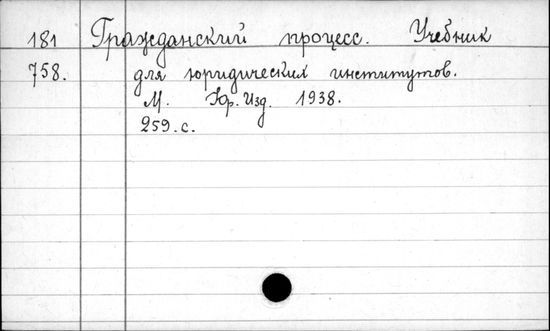 181 Гражданский процесс. Учебник
758. для юридических институтов.
М. Юр. Изд. 1938.
259. с.